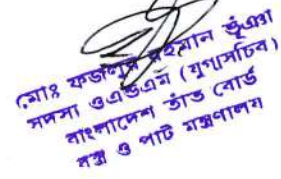 মোঃ ফজলুর রহমান ভূঁঞা
সদস্য ওএন্ডএম (যুগ্মসচিব)
বাংলাদেশ তাঁত বোর্ড
বস্ত্র ও পাট মন্ত্রণালয়